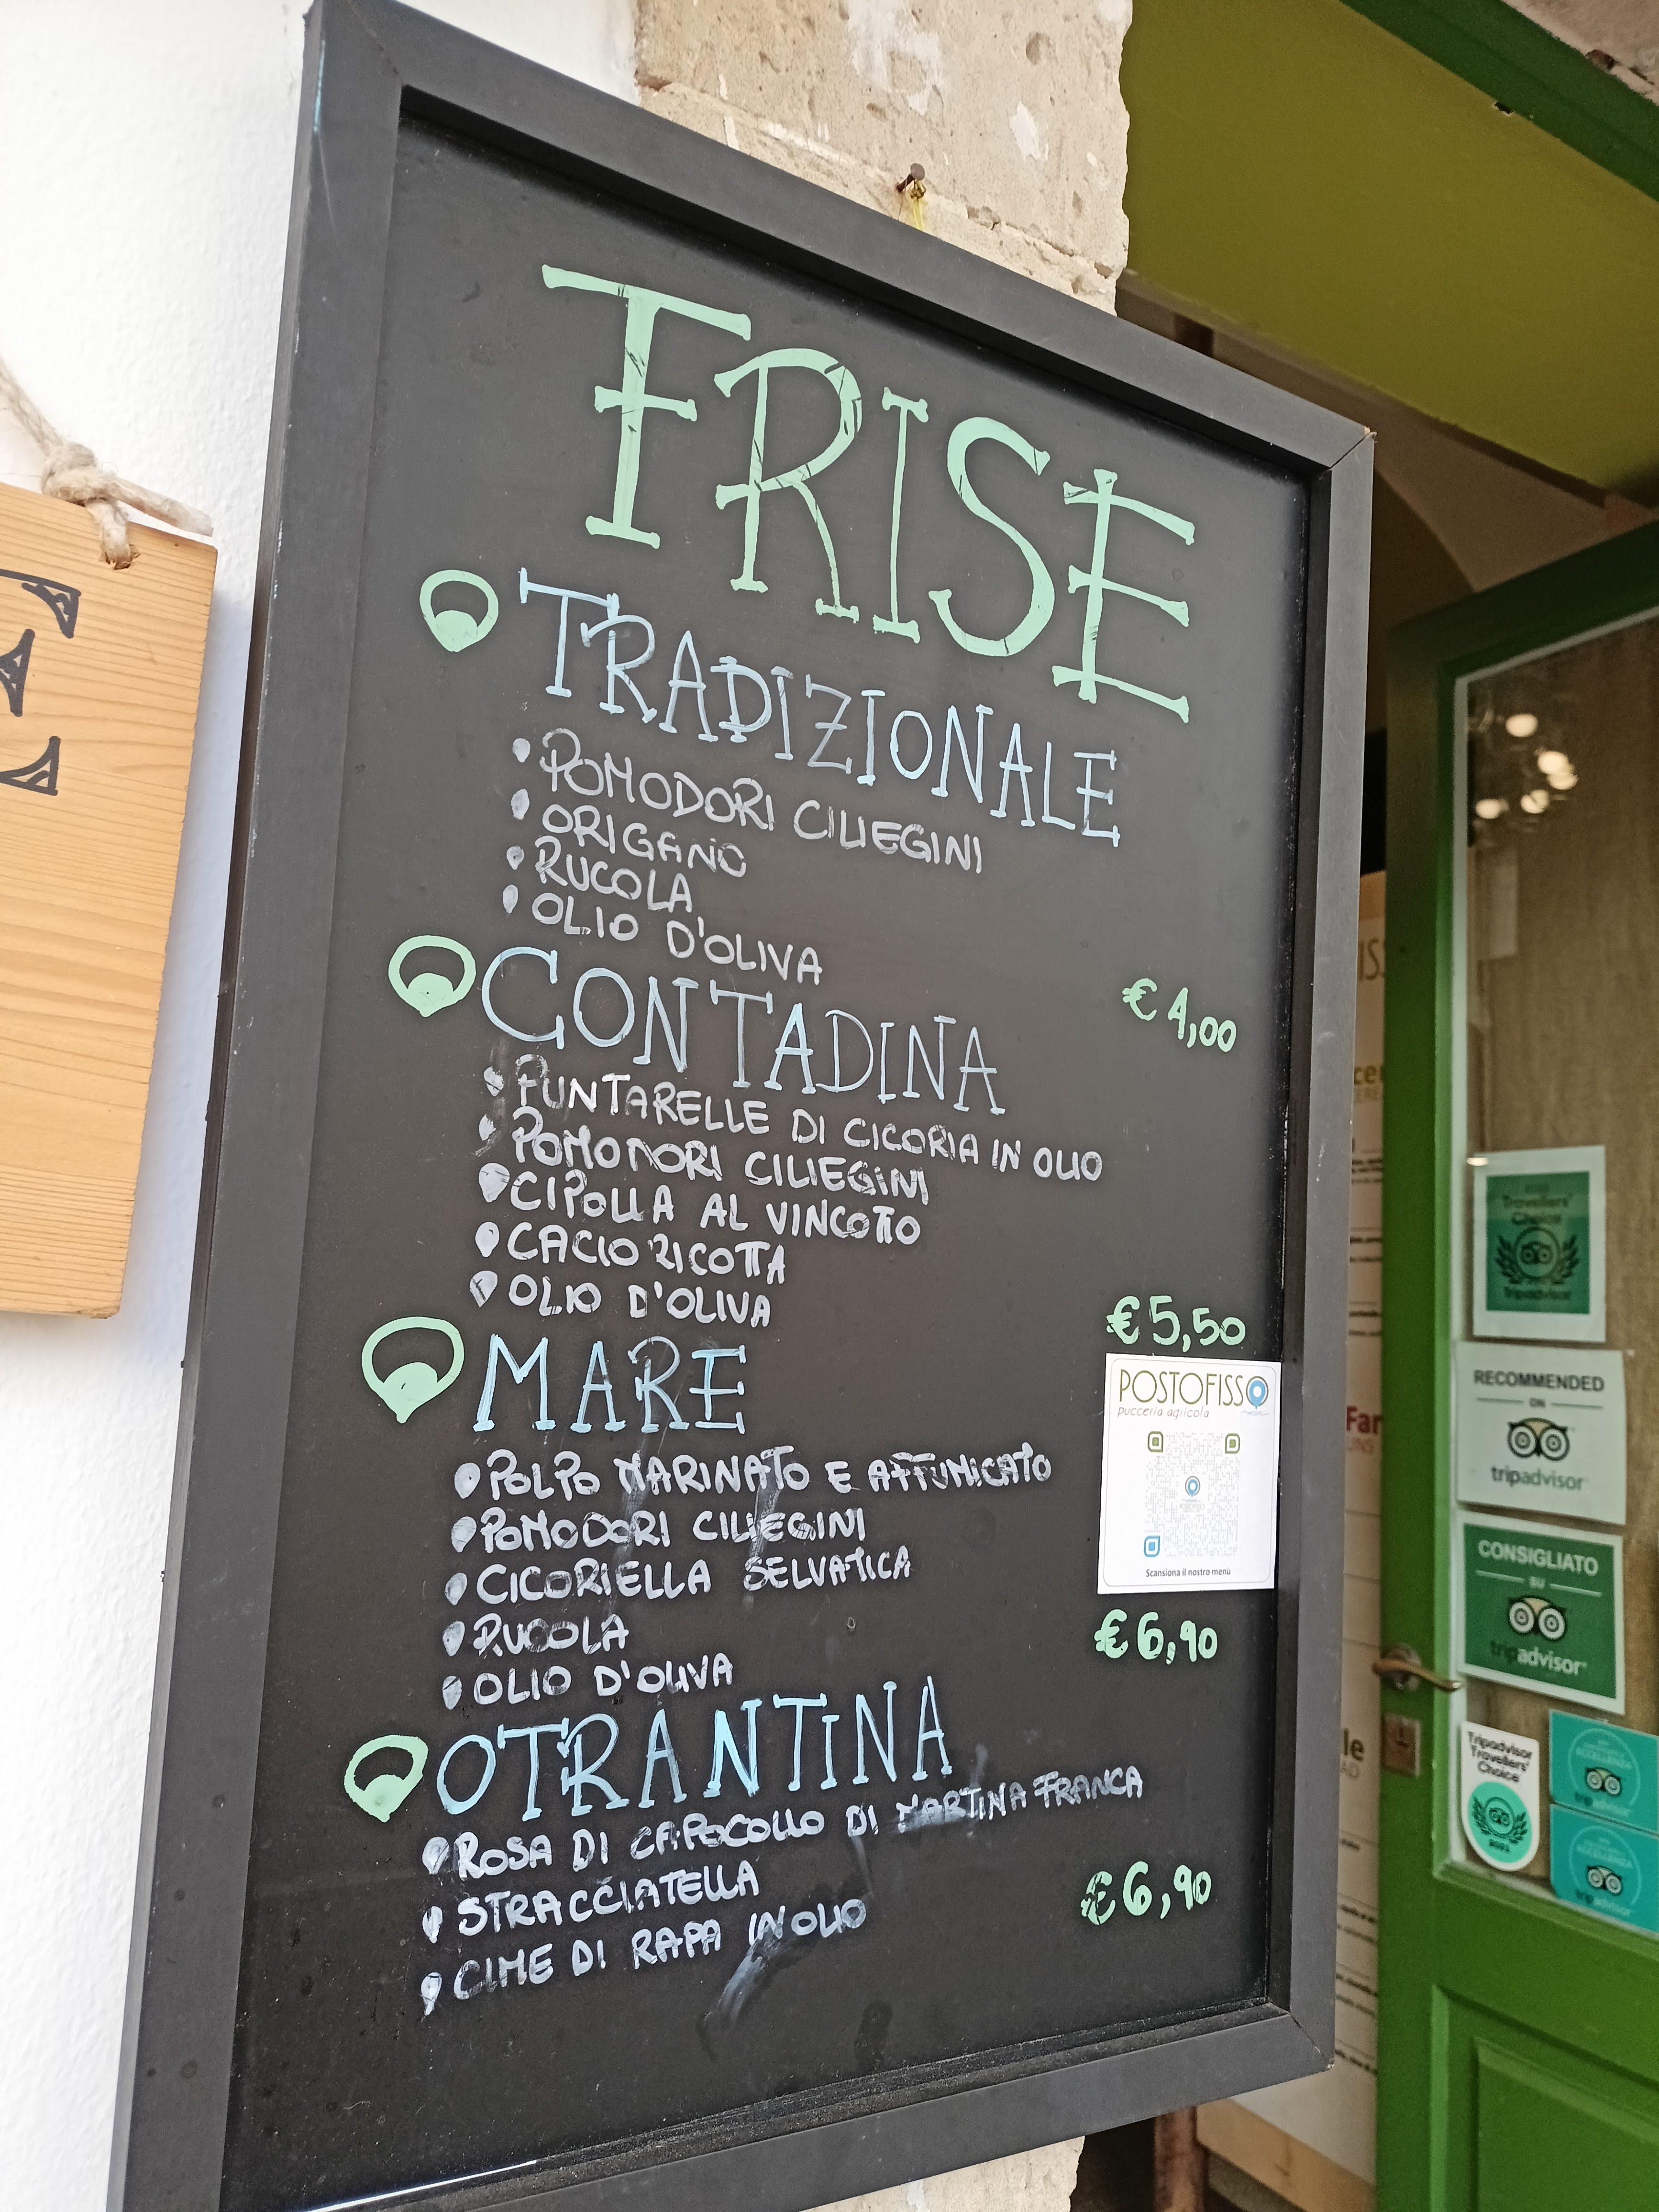 FRISE
TRADIZIONALE
POMODORI CILIEGINI
ORIGANO
RUCOLA
OLIO D'OLIVA
€ 4,00
CONTADINA
PUNTARELLE DI CICORIA IN OLIO
POMODORI CILIEGINI
CIPOLLA AL VINCOTTO
CACIO RICOTTA
OLIO D'OLIVA
€ 5,50
MARE
POLPO MARINATO E AFFUMICATO
POMODORI CILIEGINI
CICORIELLA SELVATICA
RUCOLA
OLIO D'OLIVA
€ 6,90
OTRANTINA
ROSA DI CAPOCOLLO DI MARTINA FRANCA
STRACCIATELLA
CIME DI RAPA IN OLIO
€ 6,90
POSTOFISSO
pucceria agricola
Scansiona il nostro menù
Travellers'
Choice
Tripadvisor
RECOMMENDED
ON
tripadvisor
CONSIGLIATO
SU
tripadvisor
Tripadvisor
Travellers'
Choice
tripadvisor
tripadvisor
E